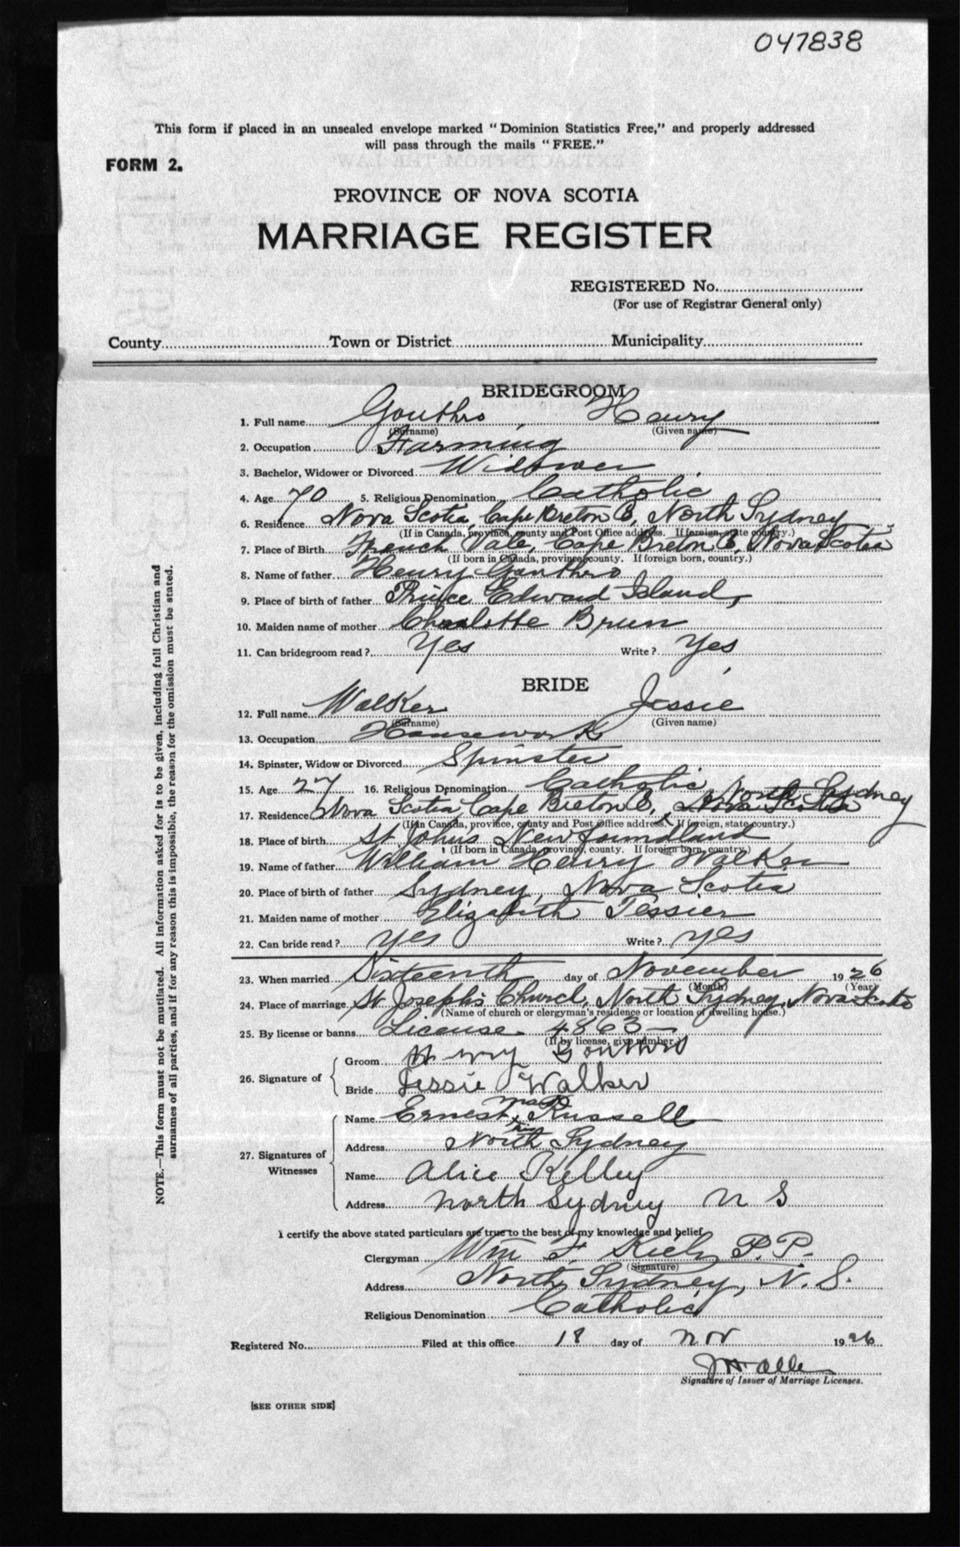 047838
This form if placed in an unsealed envelope marked "Dominion Statistics Free," and properly addressed
will pass through the mails "FREE."
FORM 2.
PROVINCE OF NOVA SCOTIA
MARRIAGE REGISTER
REGISTERED No.
(For use of Registrar General only)
County Town or District Municipality
BRIDEGROOM
1. Full name Gouthro Henry
(Surname) (Given name)
2. Occupation Farming
3. Bachelor, Widower or Divorced Widower
4. Age 70 5. Religious Denomination Catholic
6. Residence Nova Scotia, Cape Breton Co, North Sydney
(If in Canada, province, county and Post Office address. If foreign, state country.)
7. Place of Birth French Vale, Cape Breton Co, Nova Scotia
(If born in Canada, province, county. If foreign born, country.)
8. Name of father Henry Gouthro
9. Place of birth of father Prince Edward Island
10. Maiden name of mother Charlotte Brun
11. Can bridegroom read? Yes Write? Yes
BRIDE
12. Full name Walker Jessie
(Surname) (Given name)
13. Occupation Housework
14. Spinster, Widow or Divorced Spinster
15. Age 27 16. Religious Denomination Catholic
North Sydney
17. Residence Nova Scotia Cape Breton Co, Nova Scotia
(If in Canada, province, county and Post Office address. If foreign, state country.)
18. Place of birth St Johns Newfoundland
(If born in Canada, province, county. If foreign born, country.)
19. Name of father William Henry Walker
20. Place of birth of father Sydney, Nova Scotia
21. Maiden name of mother Elizabeth Tessier
22. Can bride read? yes Write? yes
23. When married Sixteenth day of November 1926
(Month) (Year)
24. Place of marriage St Joseph's Church, North Sydney, Nova Scotia
(Name of church or clergyman's residence or location of dwelling house.)
25. By license or banns License 4863
(If by license, give number.)
26. Signature of
Groom Henry Gouthro
Bride Jessie Walker
27. Signatures of Witnesses
Name Ernest Russell
Address North Sydney
Name Alice Kelley
Address North Sydney N S
I certify the above stated particulars are true to the best of my knowledge and belief.
Clergyman Wm F. P.P.
(Signature)
Address North Sydney, N. S.
Religious Denomination Catholic
Registered No. Filed at this office 18 day of Nov 1926
Signature of Issuer of Marriage Licenses.
[SEE OTHER SIDE]
NOTE.—This form must not be mutilated. All information asked for is to be given, including full Christian and
surnames of all parties, and if for any reason this is impossible, the reason for the omission must be stated.